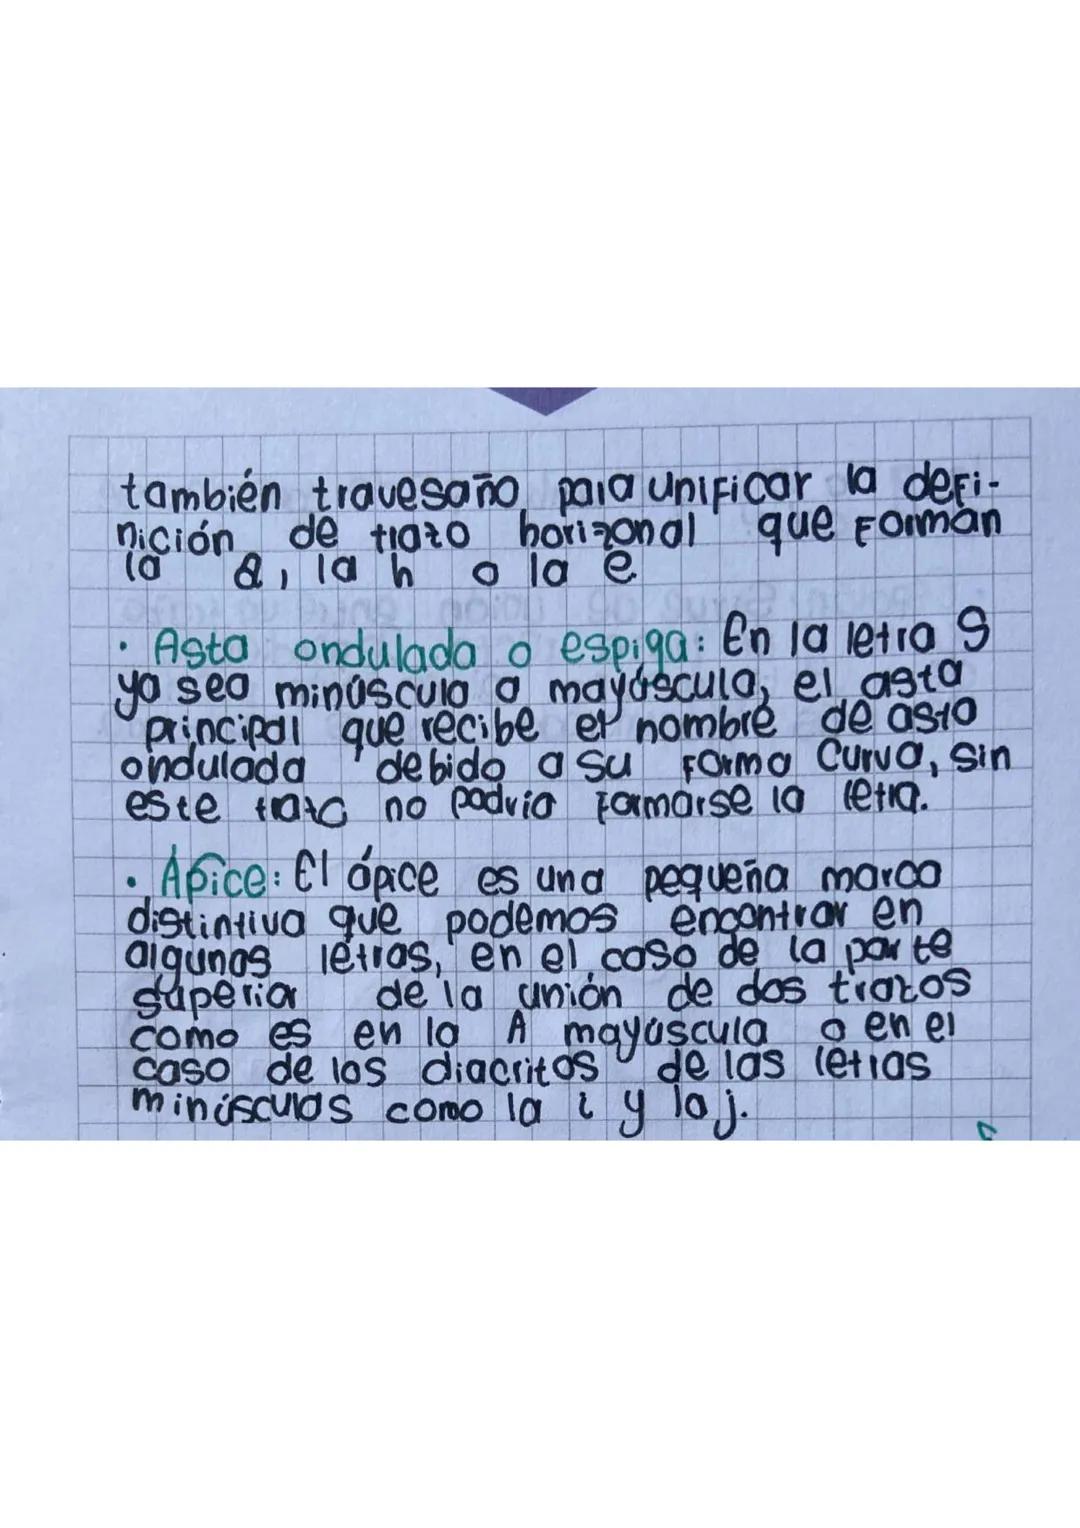 también travesaño para unificar la defi-
nición de trazo horizonal que forman
la a, la h o la e
· Asta ondulada o espiga: En la letra S
ya sea minúscula o mayúscula, el asta
principal que recibe el nombre de asta
ondulada debido a su forma curva, sin
este trazo no podria formarse la letra.
· Ápice: El ápice es una pequeña marca
distintiva que podemos encontrar en
algunas letras, en el caso de la parte
superior de la unión de dos trazos
como es en la A mayúscula o en el
caso de los diacritos de las letras
minúsculas como la i y la j.